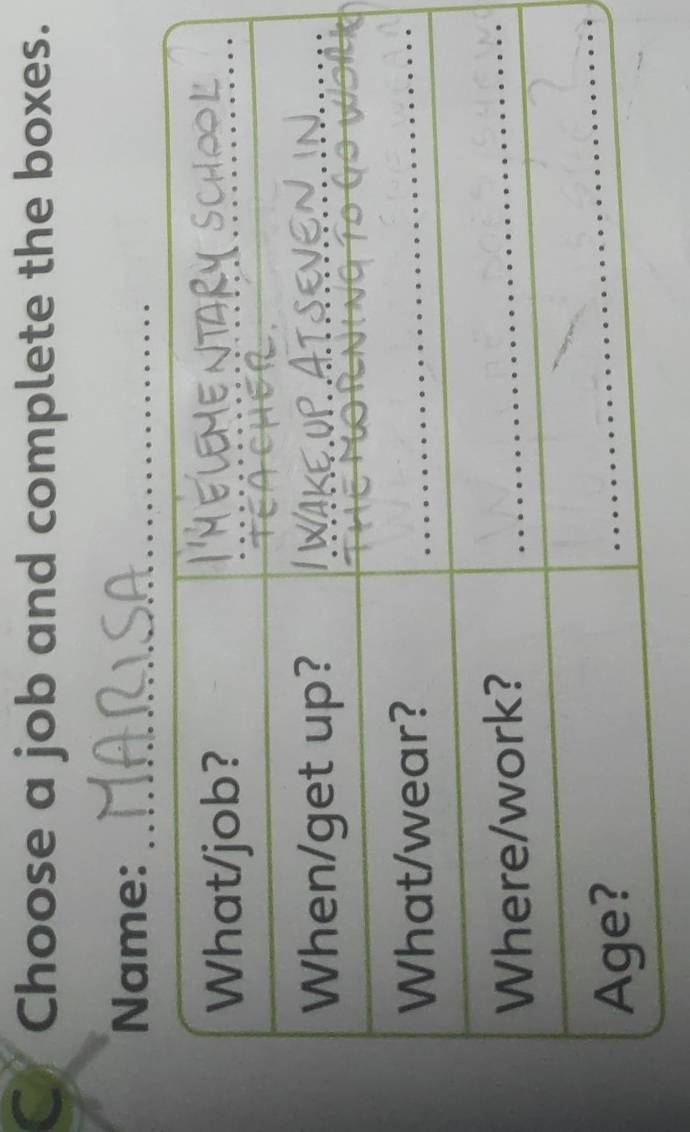 C Choose a job and complete the boxes.
Name: MARISA
What/job? I'M ELEMENTARY SCHOOL
TEACHER.
When/get up? I WAKE UP AT SEVEN IN
THE MORNING TO GO WORK
What/wear?
Where/work?
Age?